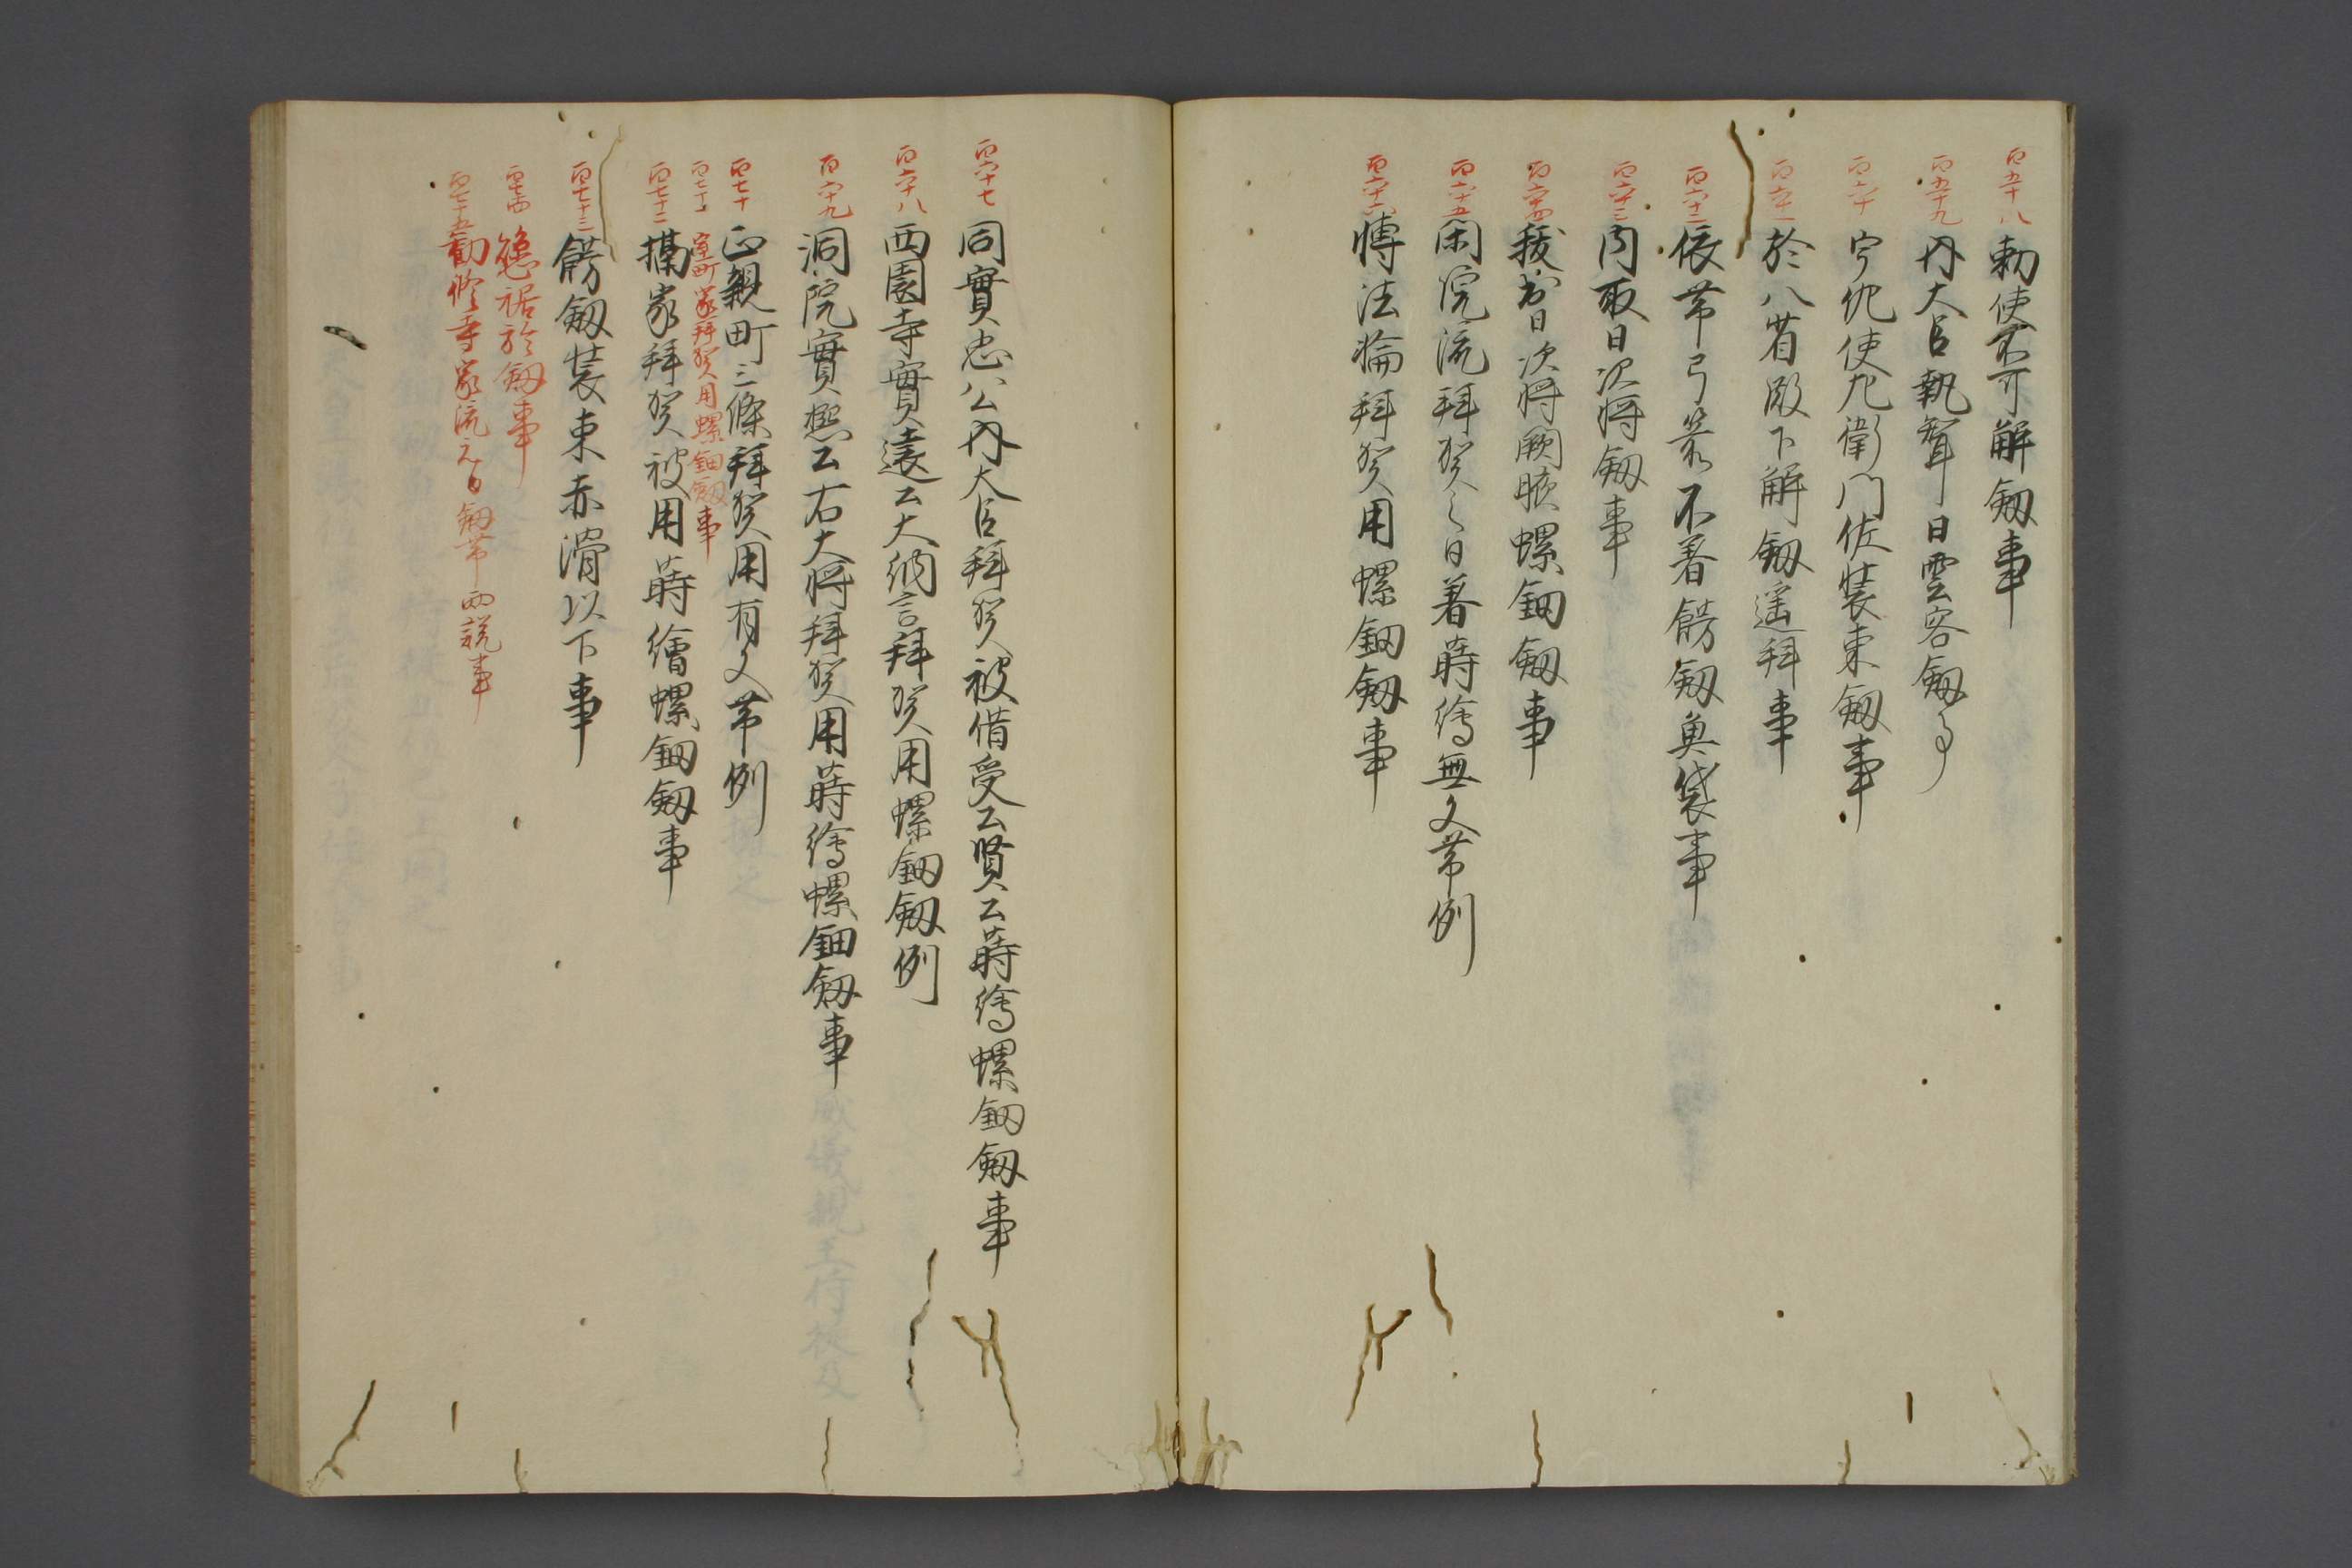 百五十八 勅使不可解劔事
百五十九 内大臣執聟日雲客劔事
百六十 宇佐使左衛門佐装束劔事
百六十一 於八省殿下解劔遥拝事
百六十二 依帯弓箭不着餝劔魚袋事
百六十三 内取日次将劔事
百六十四 日次将闕腋螺鈿劔事
百六十五 閑院流拝賀之日着蒔絵無文帯例
百六十六 轉法輪拝賀用螺鈿劔事
百六十七 同實忠公内大臣拝賀被借受公賢公蒔絵螺鈿劔事
百六十八 西園寺實遠公大納言拝賀用螺鈿劔例
百六十九 洞院實熈公右大将拝賀用蒔絵螺鈿劔事
百七十 正親町三條拝賀用有文帯例
百七十一 室町家拝賀用螺鈿劔事
百七十二 摂家拝賀被用蒔繪螺鈿劔事
百七十三 餝劔装束赤滑以下事
百七十四 懸裾於劔事
百七十五 勧修寺家流元日劔帯両説事